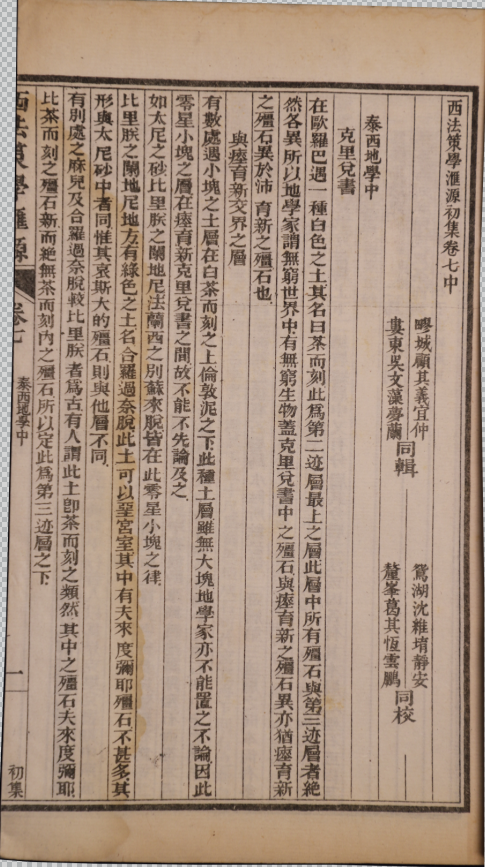 西法策學滙源初集卷七中
疁城顧其義宜仲
婁東吳文藻夢蘭
同輯
鴛湖沈維堉靜安
釐峯葛其恆雲鵬
同校
泰西地學中
克里兌書
在歐羅巴遇一種白色之土其名曰茶而刻此爲第二迹層最上之層此層中所有殭石與第三迹層者絶
然各異所以地學家謂無窮世界中有無窮生物蓋克里兌書中之殭石與瘞育新之殭石異亦猶瘞育新
之殭石異於沛育新之殭石也
與瘞育新交界之層
有數處遇小塊之土層在白茶而刻之上倫敦泥之下此種土層雖無大塊地學家亦不能置之不論因此
零星小塊之層在瘞育新克里兌書之間故不能不先論及之
如太尼之砂比里朕之闌地尼法蘭西之別蘇來脫皆在此零星小塊之律
比里朕之闌地尼地方有綠色之土名合羅過奈脫此土可以堊宮室其中有夫來度彌耶殭石不甚多其
形與太尼砂中者同惟其哀斯大的殭石則與他層不同
有別處之麻兒及合羅過奈脫較比里朕者爲古有人謂此土卽茶而刻之類然其中之殭石夫來度彌耶
比茶而刻之殭石新而絶無茶而刻內之殭石所以定此爲第三迹層之下
西法策學滙源
卷七
泰西地學中
一
初集